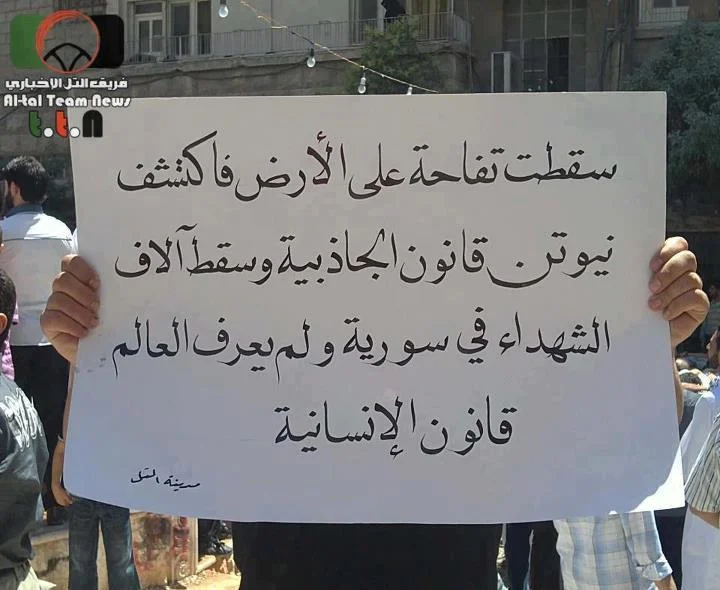 فريق التل الاخباري
Al-tal Team News
t.t.n
سقطت تفاحة على الأرض فاكتشف
نيوتن قانون الجاذبية وسقط آلاف
الشهداء في سورية ولم يعرف العالم
قانون الإنسانية
مدينة التل